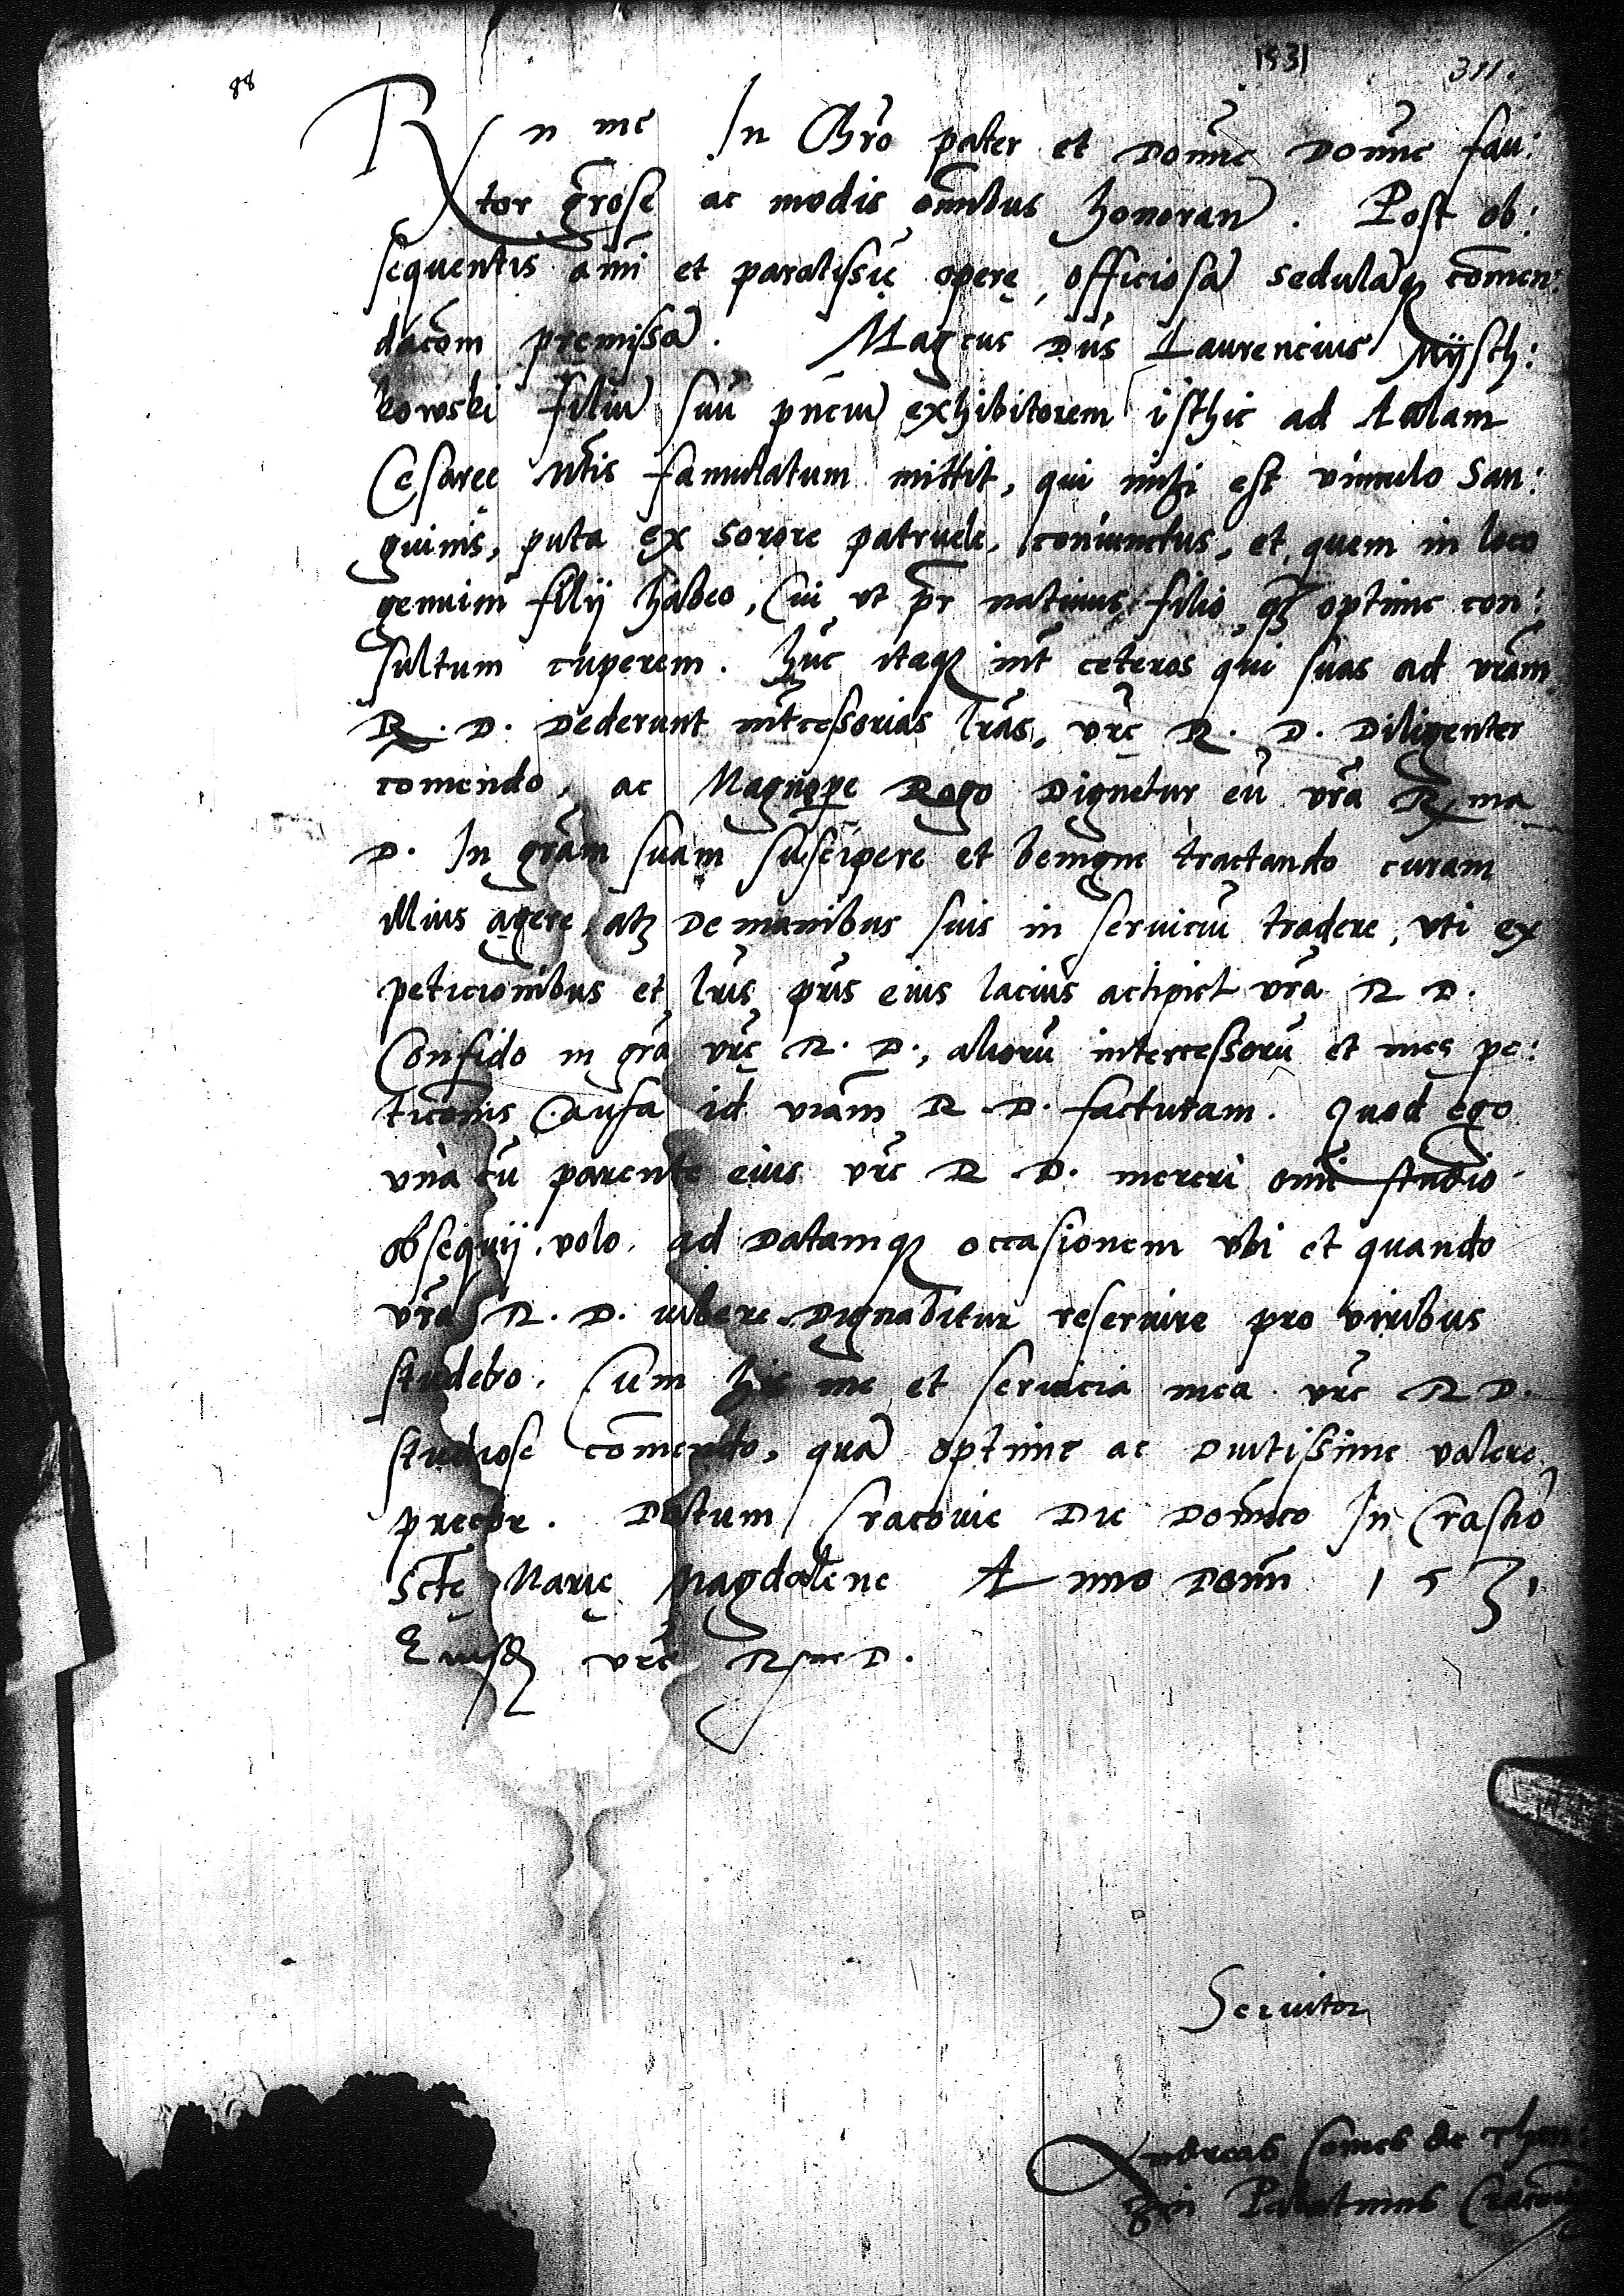 1531
311.
88
Rnme In Chrō pater et Domīe Domīe fau:
tor grōse ac modis om̄ibus honoran. Post ob:
sequentis āīmi et paratissīę operę, officiosā sedulāq₃ comen:
dacōm premissā. Magcus Dn̄s Laurencius Myisch:
kowski filiū suū pn̄ciū exhibitorem isthic ad Aulam
Cesaree Mtis famulatum mittit, qui mihi est vinculo san:
guinis, puta ex sorore patruele, coniunctus, et quem in loco
genuini filij habeo, Cui vt pr̄ natiuus filio, q₃ optime con:
sultum cuperem. Hūc itaq₃ int̄ ceteros qui suas ad vrām
R. D. Dederunt int̄cessorias lrās, vrę̄ R. D. Diligenter
comendo, ac Magnopere Rogo Dignetur eū vrā Rma
D. In grām suam suscipere et benigne tractando curam
illius agere, at₃ De manibus suis in seruiciū tradere, vti ex
peticionibus et lrīs pr̄is eius lacius accipiet vrā R D.
Confido in grā vrę̄ R. D., aliorū intercessorū et meę pe:
ticōnis Causa id vrām R D. facturam. Quod ego
vnà cū parente eius vrē R D. mereri omī studio
obsequij volo, ad Datamq₃ occasionem vbi et quando
vrā R. D. iubere Dignabitur reseruire pro viribus
studebo. Cum his me et seruicia mea vrē R D.
studiose comendo, quā optime ac Diutissime valere
precor. Datum Cracouie Die Domīco In Crastīo
Sctę Marię Magdalene Anno Domī 1531
Eiusd₃ vrē Rme D.
Seruitor
Andreas Comes de Then:
czin Palatinus Cracouien